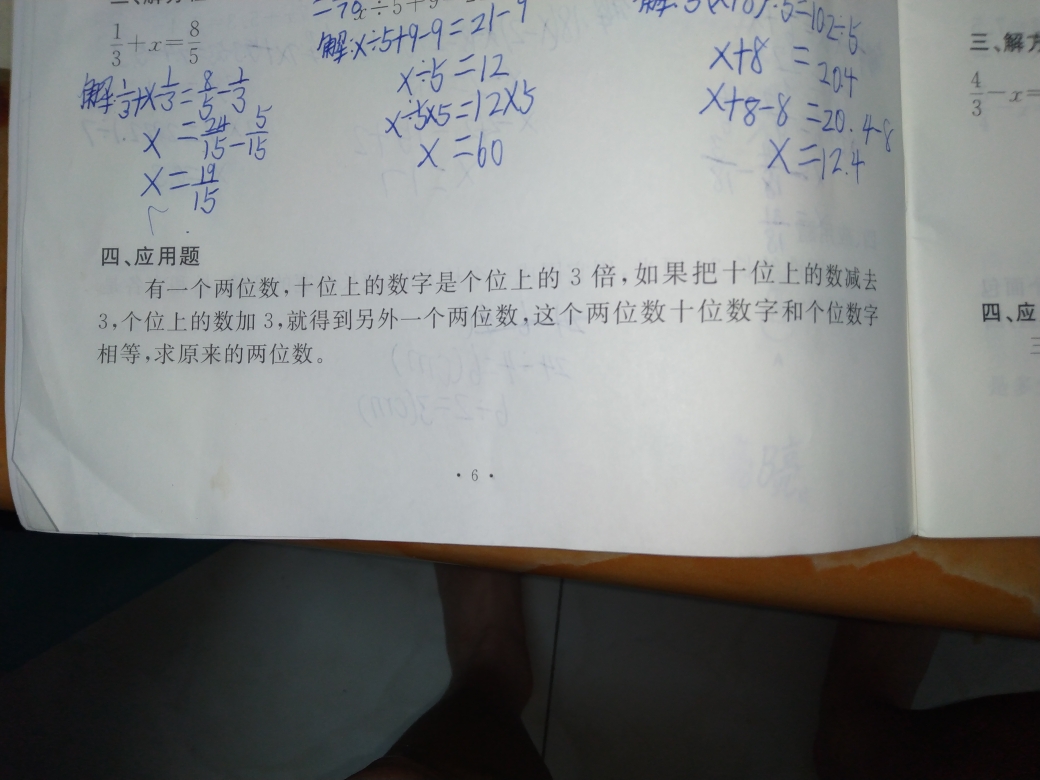 1/3+x=8/5
解:1/3+x-1/3=8/5-1/3
x=24/15-5/15
x=19/15
=70
解:x÷5+9-9=21-9
x÷5=12
x÷5×5=12×5
x=60
x+8=20.4
x+8-8=20.4-8
x=12.4
四、应用题
有一个两位数,十位上的数字是个位上的 3 倍,如果把十位上的数减去
3,个位上的数加 3,就得到另外一个两位数,这个两位数十位数字和个位数字
相等,求原来的两位数。
· 6 ·
三、解方
4/3-x=
四、应
三